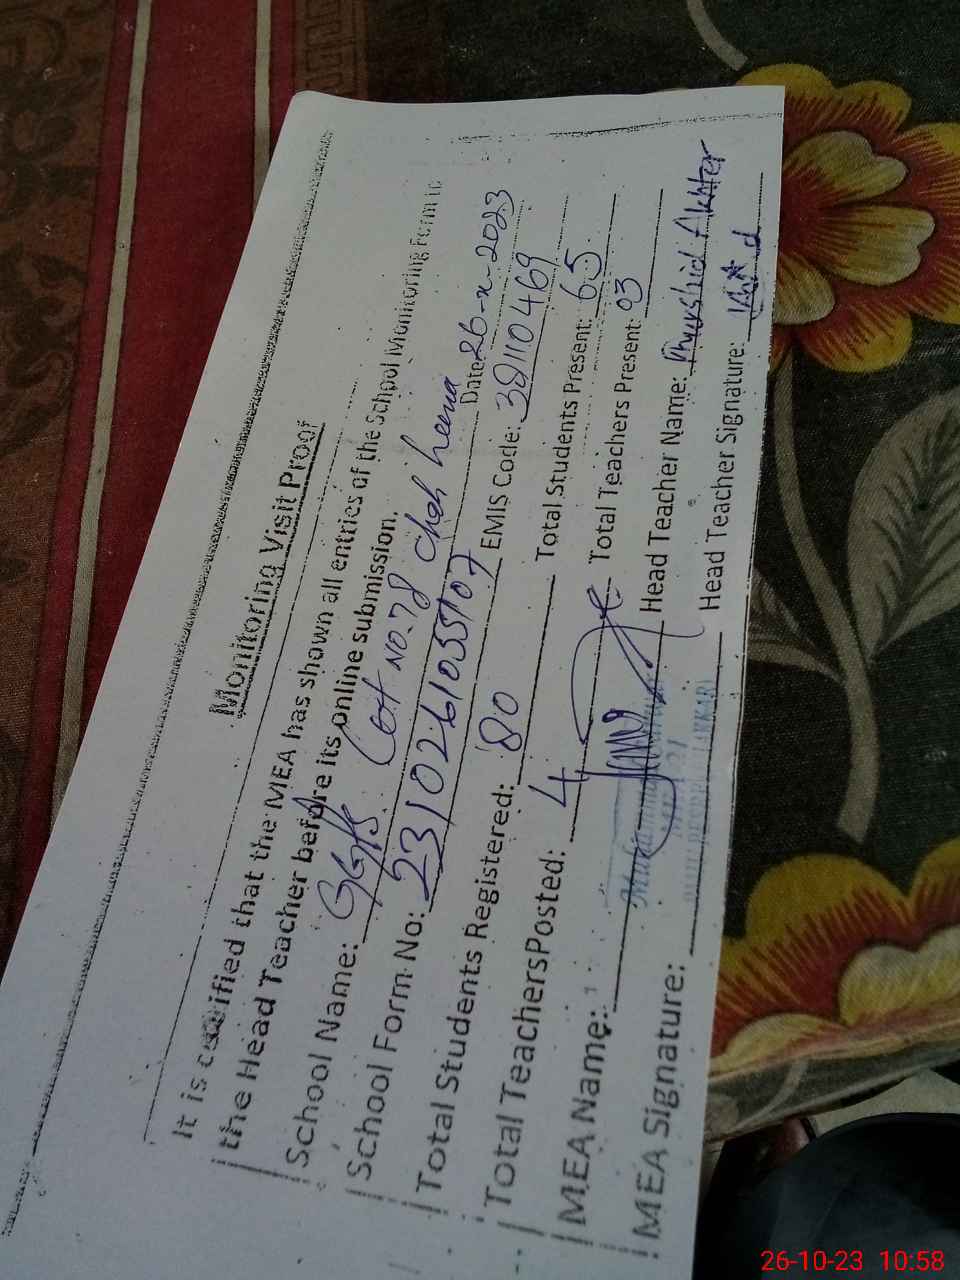 Monitoring Visit Proof
It is certified that the MEA has shown all entries of the School Monitoring Form to
the Head Teacher before its online submission.
School Name: GGPS Lot No. 78 Chah heena Date 26-x-2023
School Form No: 23102610355107 EMIS Code: 38110469
Total Students Registered: 80 Total Students Present: 65
Total TeachersPosted: 4 Total Teachers Present: 03
MEA Name: Head Teacher Name: Khurshid Akhter
MEA Signature: Head Teacher Signature:
26-10-23 10:58